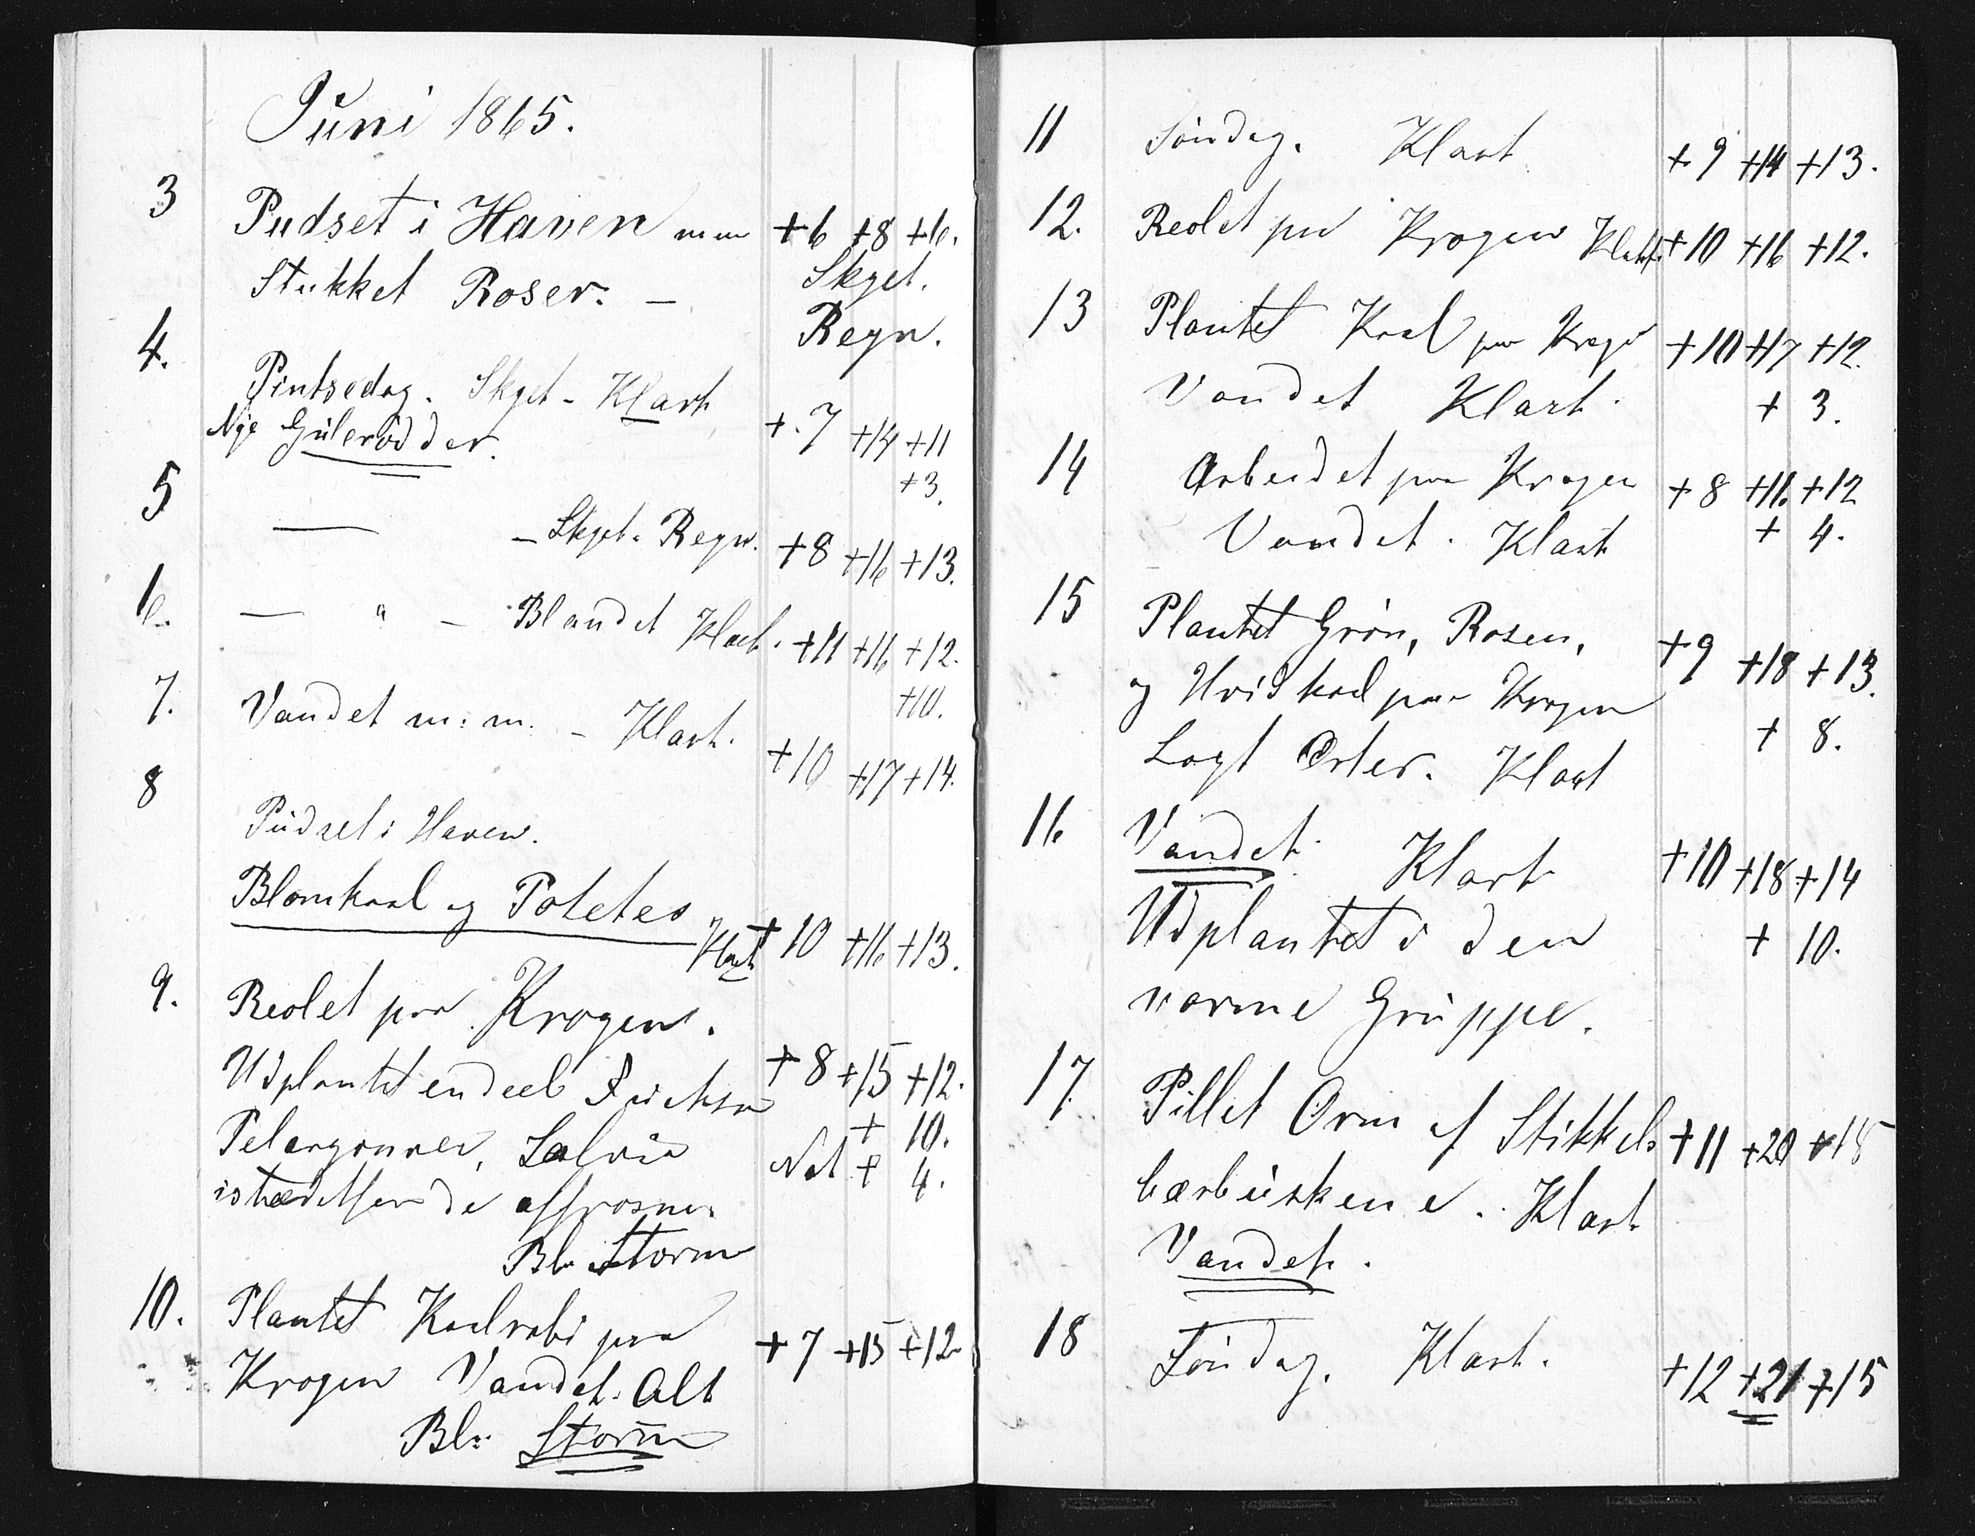 Juni 1865.
3 Pudset i Haven mm +6 +8 +6.
Stukket Roser. — Skyet.
Regn.
4. Pintsedag. Skyet - Klart
Nye Gulerødder. +7 +14 +11
+3.
5 — — Skyet. Regn. +8 +16 +13.
6. — " — Blandet Klart. +11 +16 +12.
+10.
7. Vandet m: m. - Klart. +10 +17 +14.
8 Pudset i Haven.
Blomkaal og Potetes
Klart +10 +16 +13.
9. Reolet paa Krogen.
Udplantet endeel Fuchsia +8 +15 +12.
Pelargonier, Salvia + 10.
istædetfor de affrosne. Nat + 4.
Bl. Storm
10. Plantet Kaalrabi paa +7 +15 +12
Krogen Vandet. Alt
Bl: Storm
11 Søndag. Klart +9 +14 +13.
12. Reolet paa Krogen Klart +10 +16 +12.
13 Plantet Kaal paa Krogen +10 +17 +12.
Vandet Klart. + 3.
14 Arbeidet paa Krogen +8 +16 +12
Vandet. Klart + 4.
15 Plantet Grøn, Rosen, +9 +18 +13.
og Hvidkaal paa Krogen
Lagt Erter. Klart + 8.
16 Vandet. Klart +10 +18 +14
Udplantet i den + 10.
varme Gruppe.
17. Pillet Orm af Stikkels +11 +20 +15
bærbuskene. Klart
Vandet.
18 Søndag. Klart. +12 +21 +15